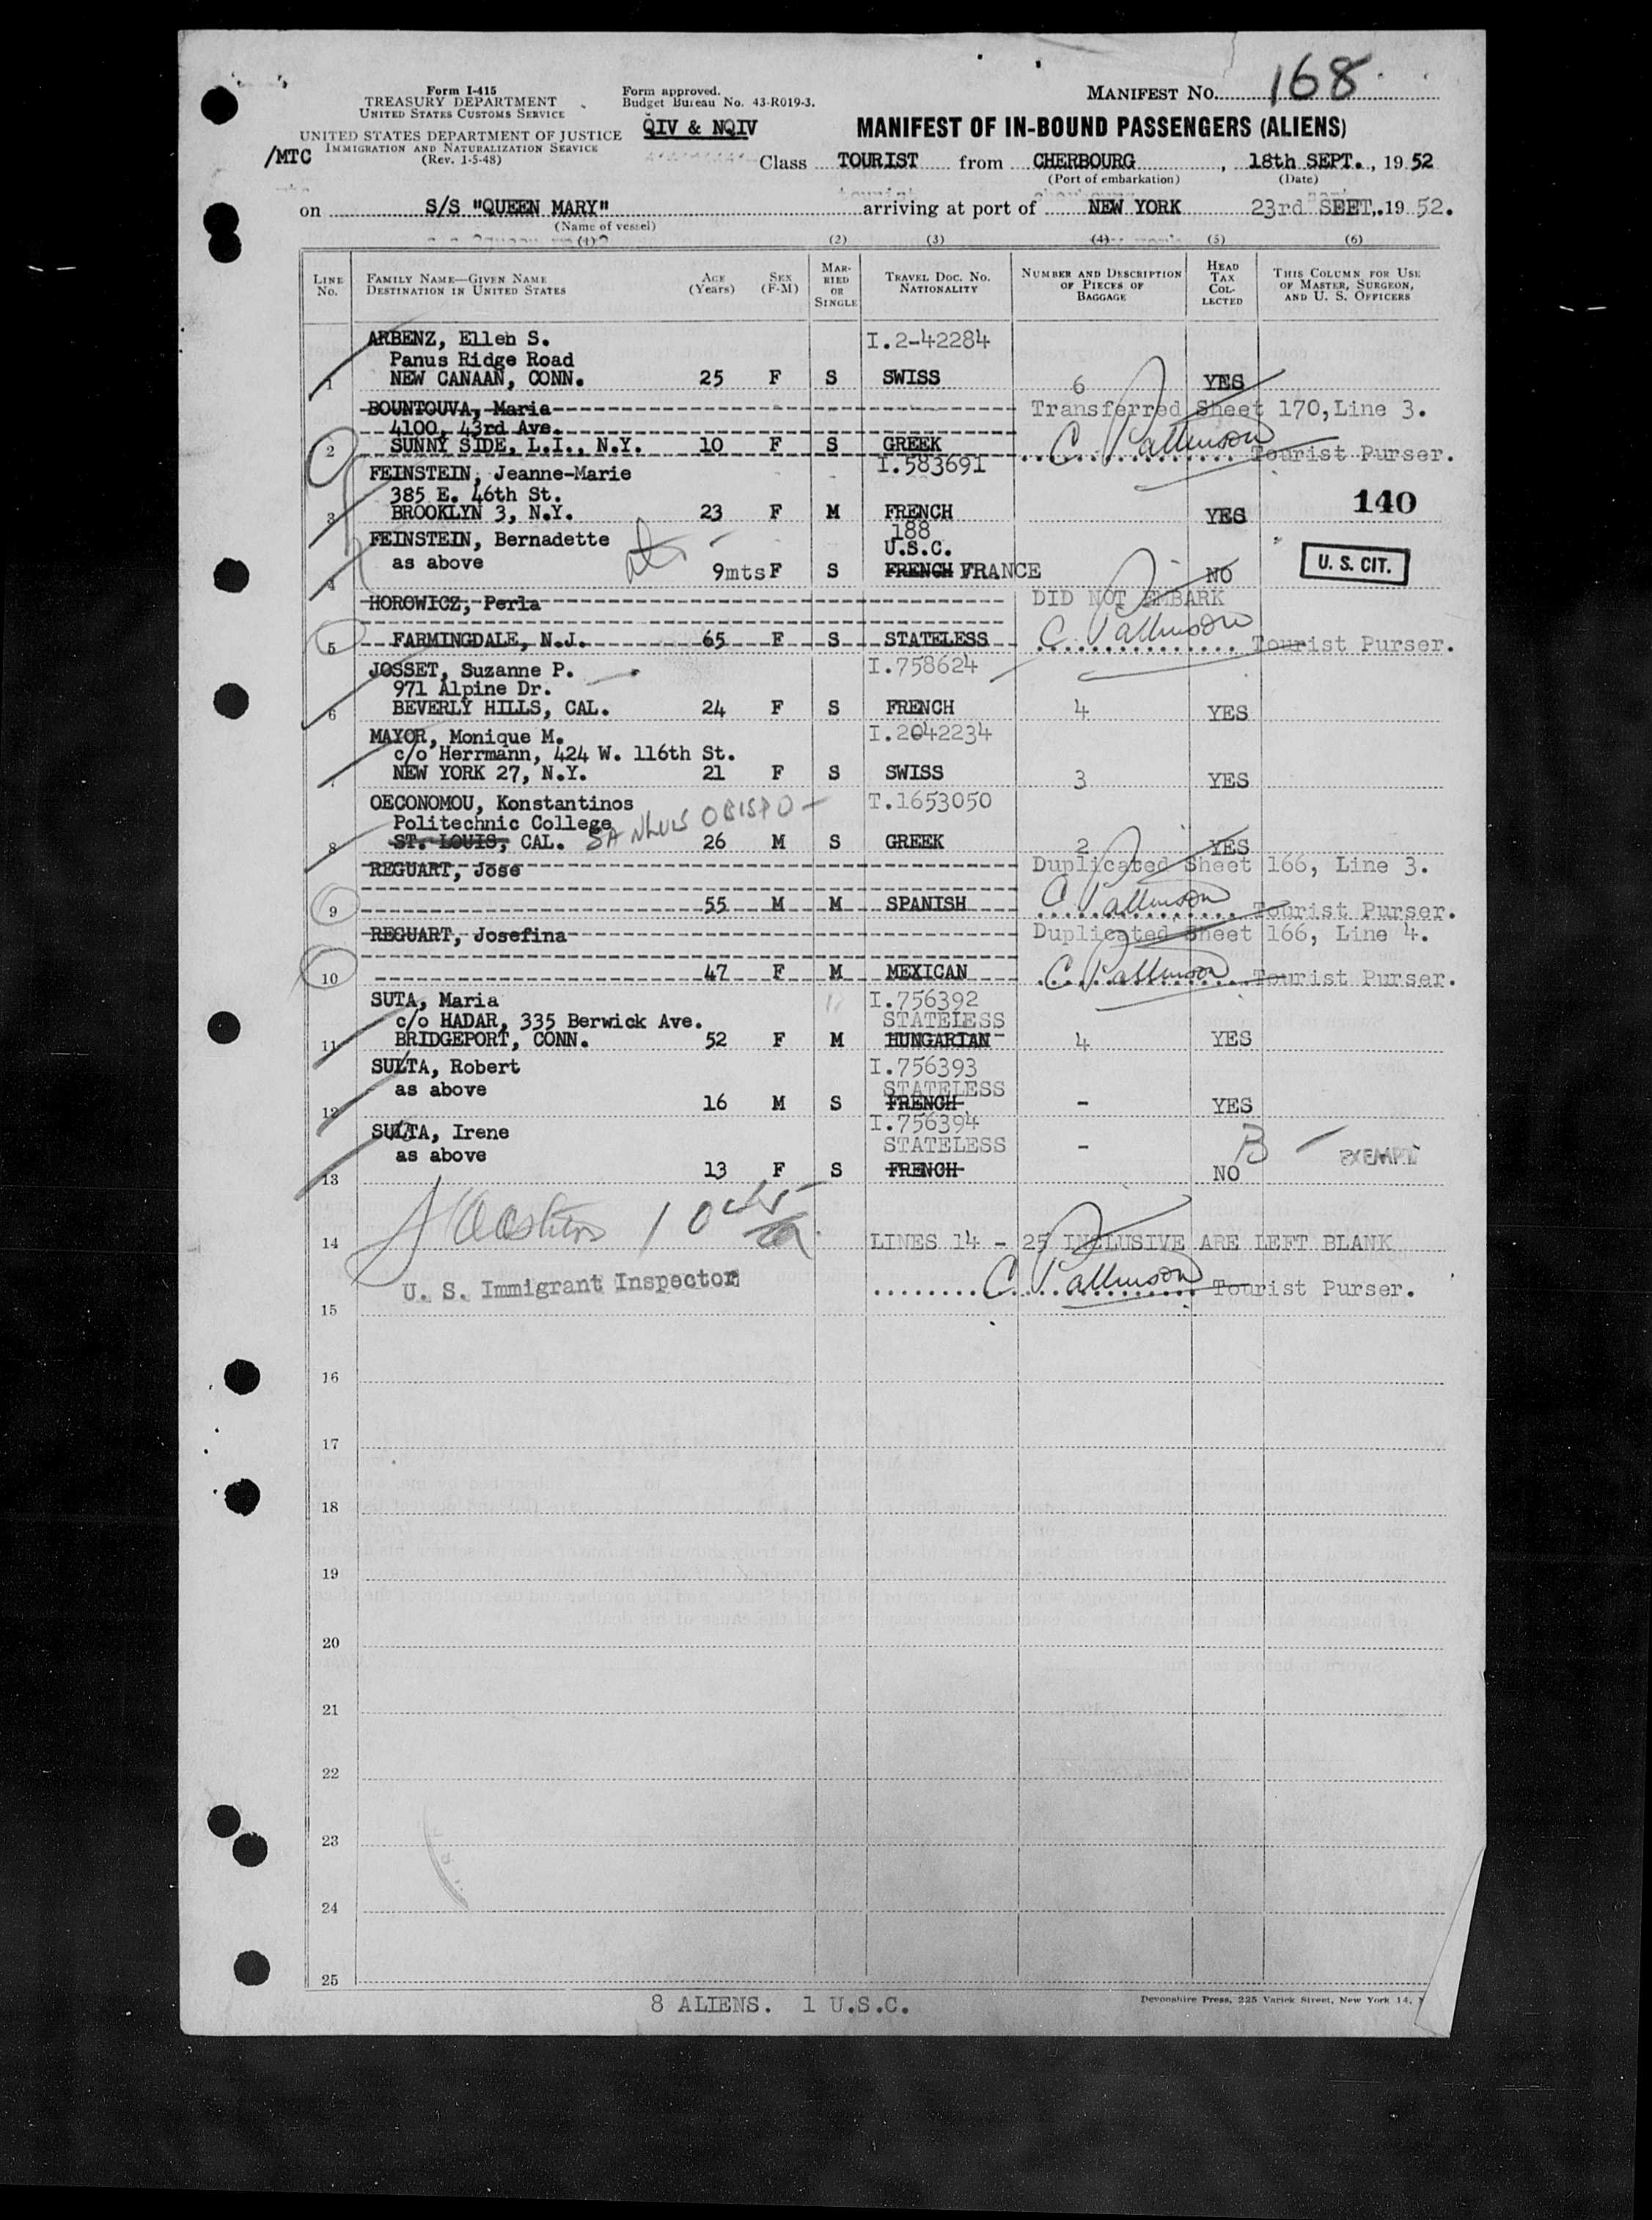 Form I-415
TREASURY DEPARTMENT
UNITED STATES CUSTOMS SERVICE
UNITED STATES DEPARTMENT OF JUSTICE
IMMIGRATION AND NATURALIZATION SERVICE
(Rev. 1-5-48)
/MTC
Form approved.
Budget Bureau No. 43-R019-3.
QIV & NQIV
MANIFEST NO. 168
MANIFEST OF IN-BOUND PASSENGERS (ALIENS)
Class TOURIST from CHERBOURG, 18th SEPT., 1952
(Port of embarkation) (Date)
on S/S "QUEEN MARY" arriving at port of NEW YORK 23rd SEPT., 1952.
(Name of vessel)
(1) (2) (3) (4) (5) (6)
LINE NO. FAMILY NAME—GIVEN NAME DESTINATION IN UNITED STATES AGE (Years) SEX (F-M) MARRIED OR SINGLE TRAVEL DOC. NO. NATIONALITY NUMBER AND DESCRIPTION OF PIECES OF BAGGAGE HEAD TAX COLLECTED THIS COLUMN FOR USE OF MASTER, SURGEON, AND U. S. OFFICERS
ARBENZ, Ellen S. I.2-42284
Panus Ridge Road
1 NEW CANAAN, CONN. 25 F S SWISS 6 YES
BOUNTOUVA, Maria Transferred Sheet 170, Line 3.
4100, 43rd Ave.
2 SUNNY SIDE, L.I., N.Y. 10 F S GREEK C. Pattinson Tourist Purser.
FEINSTEIN, Jeanne-Marie I.583691
385 E. 46th St. 140
3 BROOKLYN 3, N.Y. 23 F M FRENCH YES
FEINSTEIN, Bernadette 188
as above U.S.C. U. S. CIT.
4 9mts F S FRENCH FRANCE NO
HOROWICZ, Perla DID NOT EMBARK
5 FARMINGDALE, N.J. 65 F S STATELESS C. Pattinson Tourist Purser.
JOSSET, Suzanne P. I.758624
971 Alpine Dr.
6 BEVERLY HILLS, CAL. 24 F S FRENCH 4 YES
MAYOR, Monique M. I.2042234
c/o Herrmann, 424 W. 116th St.
NEW YORK 27, N.Y. 21 F S SWISS 3 YES
OECONOMOU, Konstantinos T.1653050
Politechnic College
8 ST. LOUIS, CAL. SAN LUIS OBISPO 26 M S GREEK 2 YES
REGUART, Jose Duplicated Sheet 166, Line 3.
9 55 M M SPANISH C. Pattinson Tourist Purser.
REGUART, Josefina Duplicated Sheet 166, Line 4.
10 47 F M MEXICAN C. Pattinson Tourist Purser.
SUTA, Maria I.756392
c/o HADAR, 335 Berwick Ave. STATELESS
11 BRIDGEPORT, CONN. 52 F M HUNGARIAN 4 YES
SULTA, Robert I.756393
as above STATELESS
12 16 M S FRENCH - YES
SULTA, Irene I.756394
as above STATELESS - B EXEMPT
13 13 F S FRENCH NO
14 LINES 14 - 25 INCLUSIVE ARE LEFT BLANK
U. S. Immigrant Inspector C. Pattinson Tourist Purser.
15
16
17
18
19
20
21
22
23
24
25
8 ALIENS. 1 U.S.C.
Devonshire Press, 225 Varick Street, New York 14,